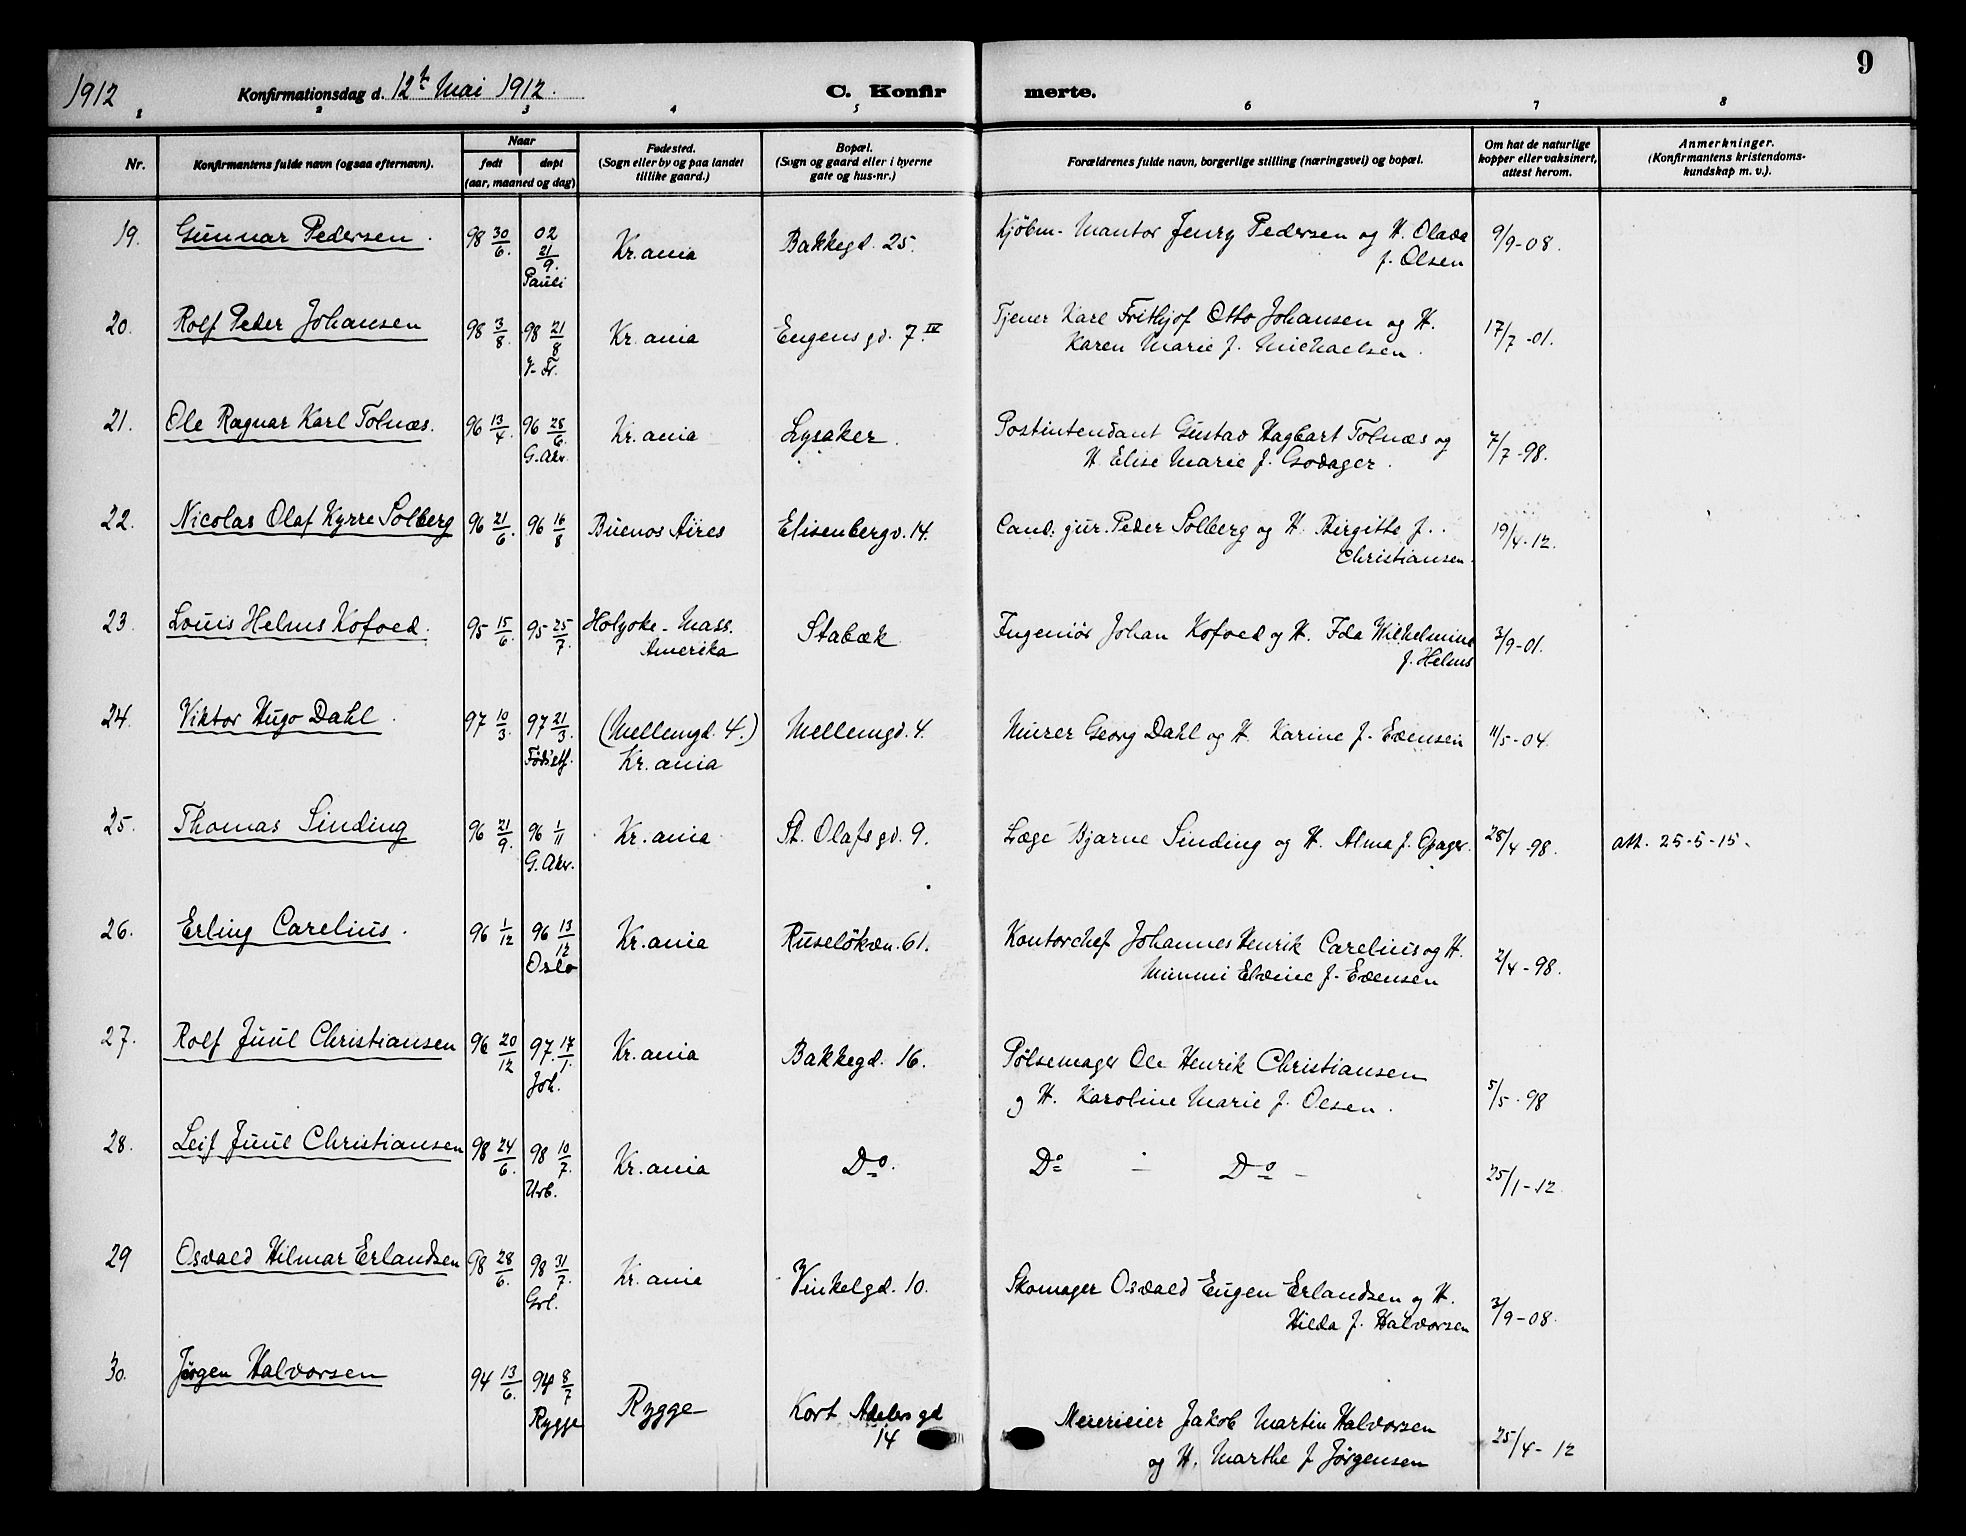 1912 Konfirmationsdag d. 12t Mai 1912. C. Konfirmerte. 9
1 2 3 4 5 6 7 8
Nr. Konfirmantens fulde navn (ogsaa efternavn). Naar født døpt (aar, maaned og dag) Fødested. (Sogn eller by og paa landet tillike gaard.) Bopæl. (Sogn og gaard eller i byerne gate og hus-nr.) Forældrenes fulde navn, borgerlige stilling (næringsvei) og bopæl. Om hat de naturlige kopper eller vaksinert, attest herom. Anmerkninger. (Konfirmantens kristendomskundskap m. v.).
19. Gunnar Pedersen. 98 30/6. 02 21/9. Pauli Kr.ania Bakkegd. 25. Kjøbm- Jenry Pedersen og H. Olava f. Olsen 9/9-08.
20. Rolf Peder Johansen 98 3/8. 98 21/8 V. Fr. Kr.ania Eugensgd. 7.IV Tjener Karl Frithjof Otto Johansen og H. Karen Marie f. Michaelsen. 17/7-01.
21. Ole Ragnar Karl Tolnæs. 96 13/4. 96 28/6. G. Akr. Kr.ania Lysaker. Postintendant Gustav Hagbart Tolnæs og H. Elise Marie f. Godager. 7/7-98.
22. Nicolas Olaf Kyrre Solberg 96 21/6. 96 16/8 Buenos Aires Elisenbergv. 14. Cand. jur. Peder Solberg og H. Birgitte f. Christiansen. 19/4-12.
23. Louis Helms Kofoed. 95 15/6. 95 25/7. Holyoke - Mass. Amerika Stabæk Ingeniør Johan Kofoed og H. Ida Wilhelmine f. Helms 3/9-01.
24. Viktor Hugo Dahl. 97 10/3. 97 21/3. Fødselsst. (Mellemgd. 4.) Kr.ania Mellemgd. 4. Murer Georg Dahl og H. Karine f. Evensen 11/5-04.
25. Thomas Sinding 96 21/9. 96 1/11 G. Akr. Kr.ania St. Olafsgd. 9. Læge Bjarne Sinding og H. Alma f. 28/4-98. att. 25-5-15.
26. Erling Carelius. 96 1/12 96 13/12 Oslo Kr.ania Ruseløkvn. 61. Kontorchef Johannes Henrik Carelius og H. Mimmi Elvine f. Evensen 2/4-98.
27. Rolf Juul Christiansen 96 20/12 97. 17/1. Joh. Kr.ania Bakkegd. 16. Pølsemager Ole Henrik Christiansen og H. Karoline Marie f. Olsen. 5/5-98
28. Leif Juul Christiansen 98 24/6. 98 10/7. Urb. Kr.ania Do. Do - Do - 25/1-12.
29 Osvald Hilmar Erlandsen 98 28/6. 98 31/7. Grl. Kr.ania Vinkelgd. 10. Skomager Osvald Eugen Erlandsen og H. Hilda f. Halvorsen 3/9-08.
30. Jørgen Halvorsen 94 13/6. 94 8/7 Rygge Rygge Kort Adelersgd 14 Meierieier Jakob Martin Halvorsen og H. Marthe f Jørgensen 25/4-12